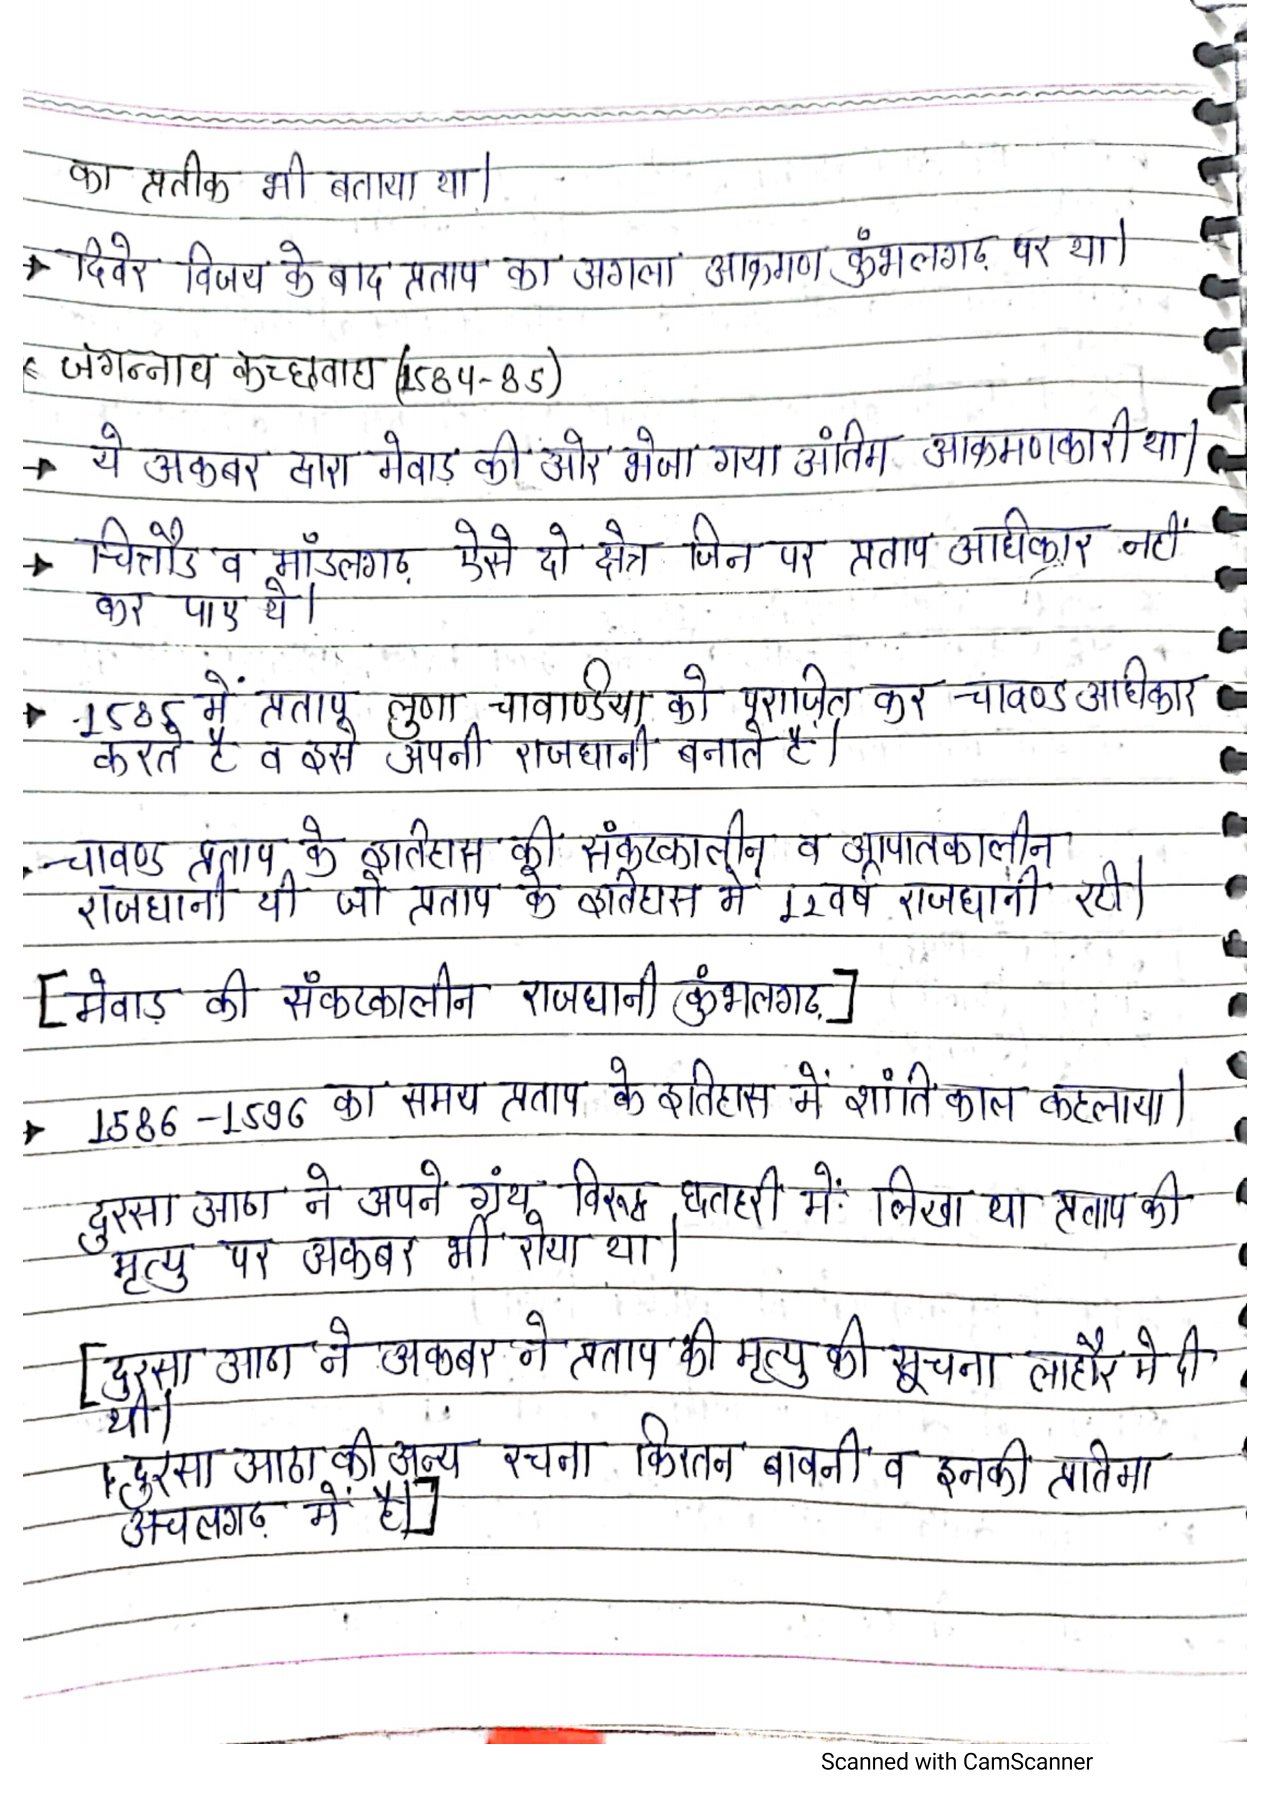 का प्रतीक भी बताया था।
→ दिवेर विजय के बाद प्रताप का अगला आक्रमण कुंभलगढ़ पर था।
जगन्नाथ कच्छवाह (1584-85)
→ ये अकबर द्वारा मेवाड़ की ओर भेजा गया अंतिम आक्रमणकारी था।
→ चित्तौड़ व माँडलगढ़ ऐसे दो क्षेत्र जिन पर प्रताप अधिकार नहीं
कर पाए थे।
→ 1585 में प्रताप लुणा चावाण्डिया को पराजित कर चावण्ड अधिकार
करते है व इसे अपनी राजधानी बनाते है।
चावण्ड प्रताप के इतिहास की संकटकालीन व आपातकालीन
राजधानी थी जो प्रताप के इतिहास मे 12 वर्ष राजधानी रही।
[मेवाड़ की संकटकालीन राजधानी कुंभलगढ़]
→ 1586-1596 का समय प्रताप के इतिहास में शांति काल कहलाया।
दुरसा आढा ने अपने ग्रंथ विरूद्ध छतहरी में लिखा था प्रताप की
मृत्यु पर अकबर भी रोया था।
[दुरसा आढा ने अकबर ने प्रताप की मृत्यु की सूचना लाहौर मे दी
थी।
दुरसा आढा की अन्य रचना किरतन बावनी व इनकी प्रतिमा
अचलगढ़ में है।]
Scanned with CamScanner